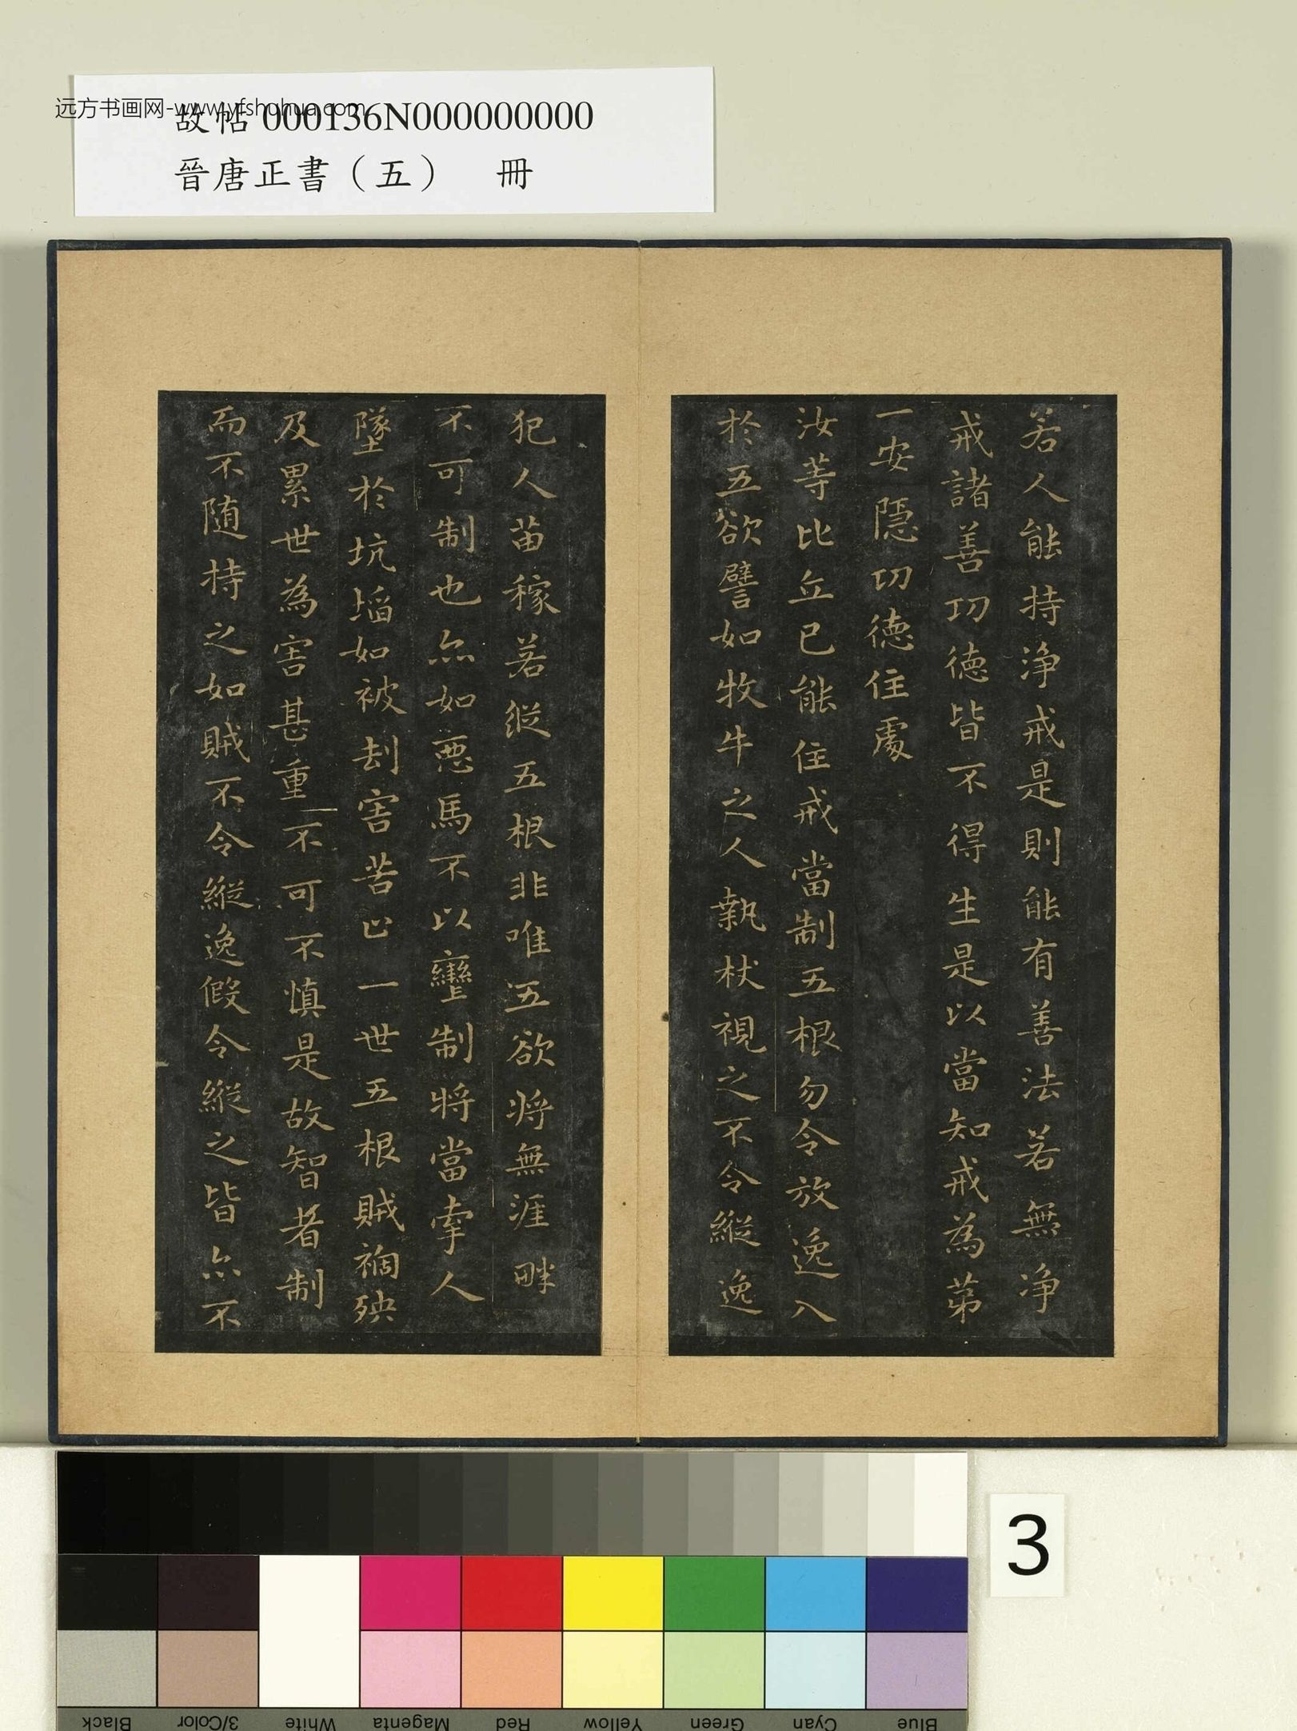 远方书画网-www.yfshuhua.com
故帖 000136N000000000
晉唐正書（五） 冊
若人能持淨戒是則能有善法若無淨
戒諸善功德皆不得生是以當知戒為第
一安隱功德住處
汝等比丘已能住戒當制五根勿令放逸入
於五欲譬如牧牛之人執杖視之不令縱逸
犯人苗稼若縱五根非唯五欲將無涯畔
不可制也亦如惡馬不以轡制將當牽人
墜於坑埳如被劫害苦止一世五根賊禍殃
及累世為害甚重不可不慎是故智者制
而不隨持之如賊不令縱逸假令縱之皆亦不
3
Black
3/Color
White
Magenta
Red
Yellow
Green
Cyan
Blue